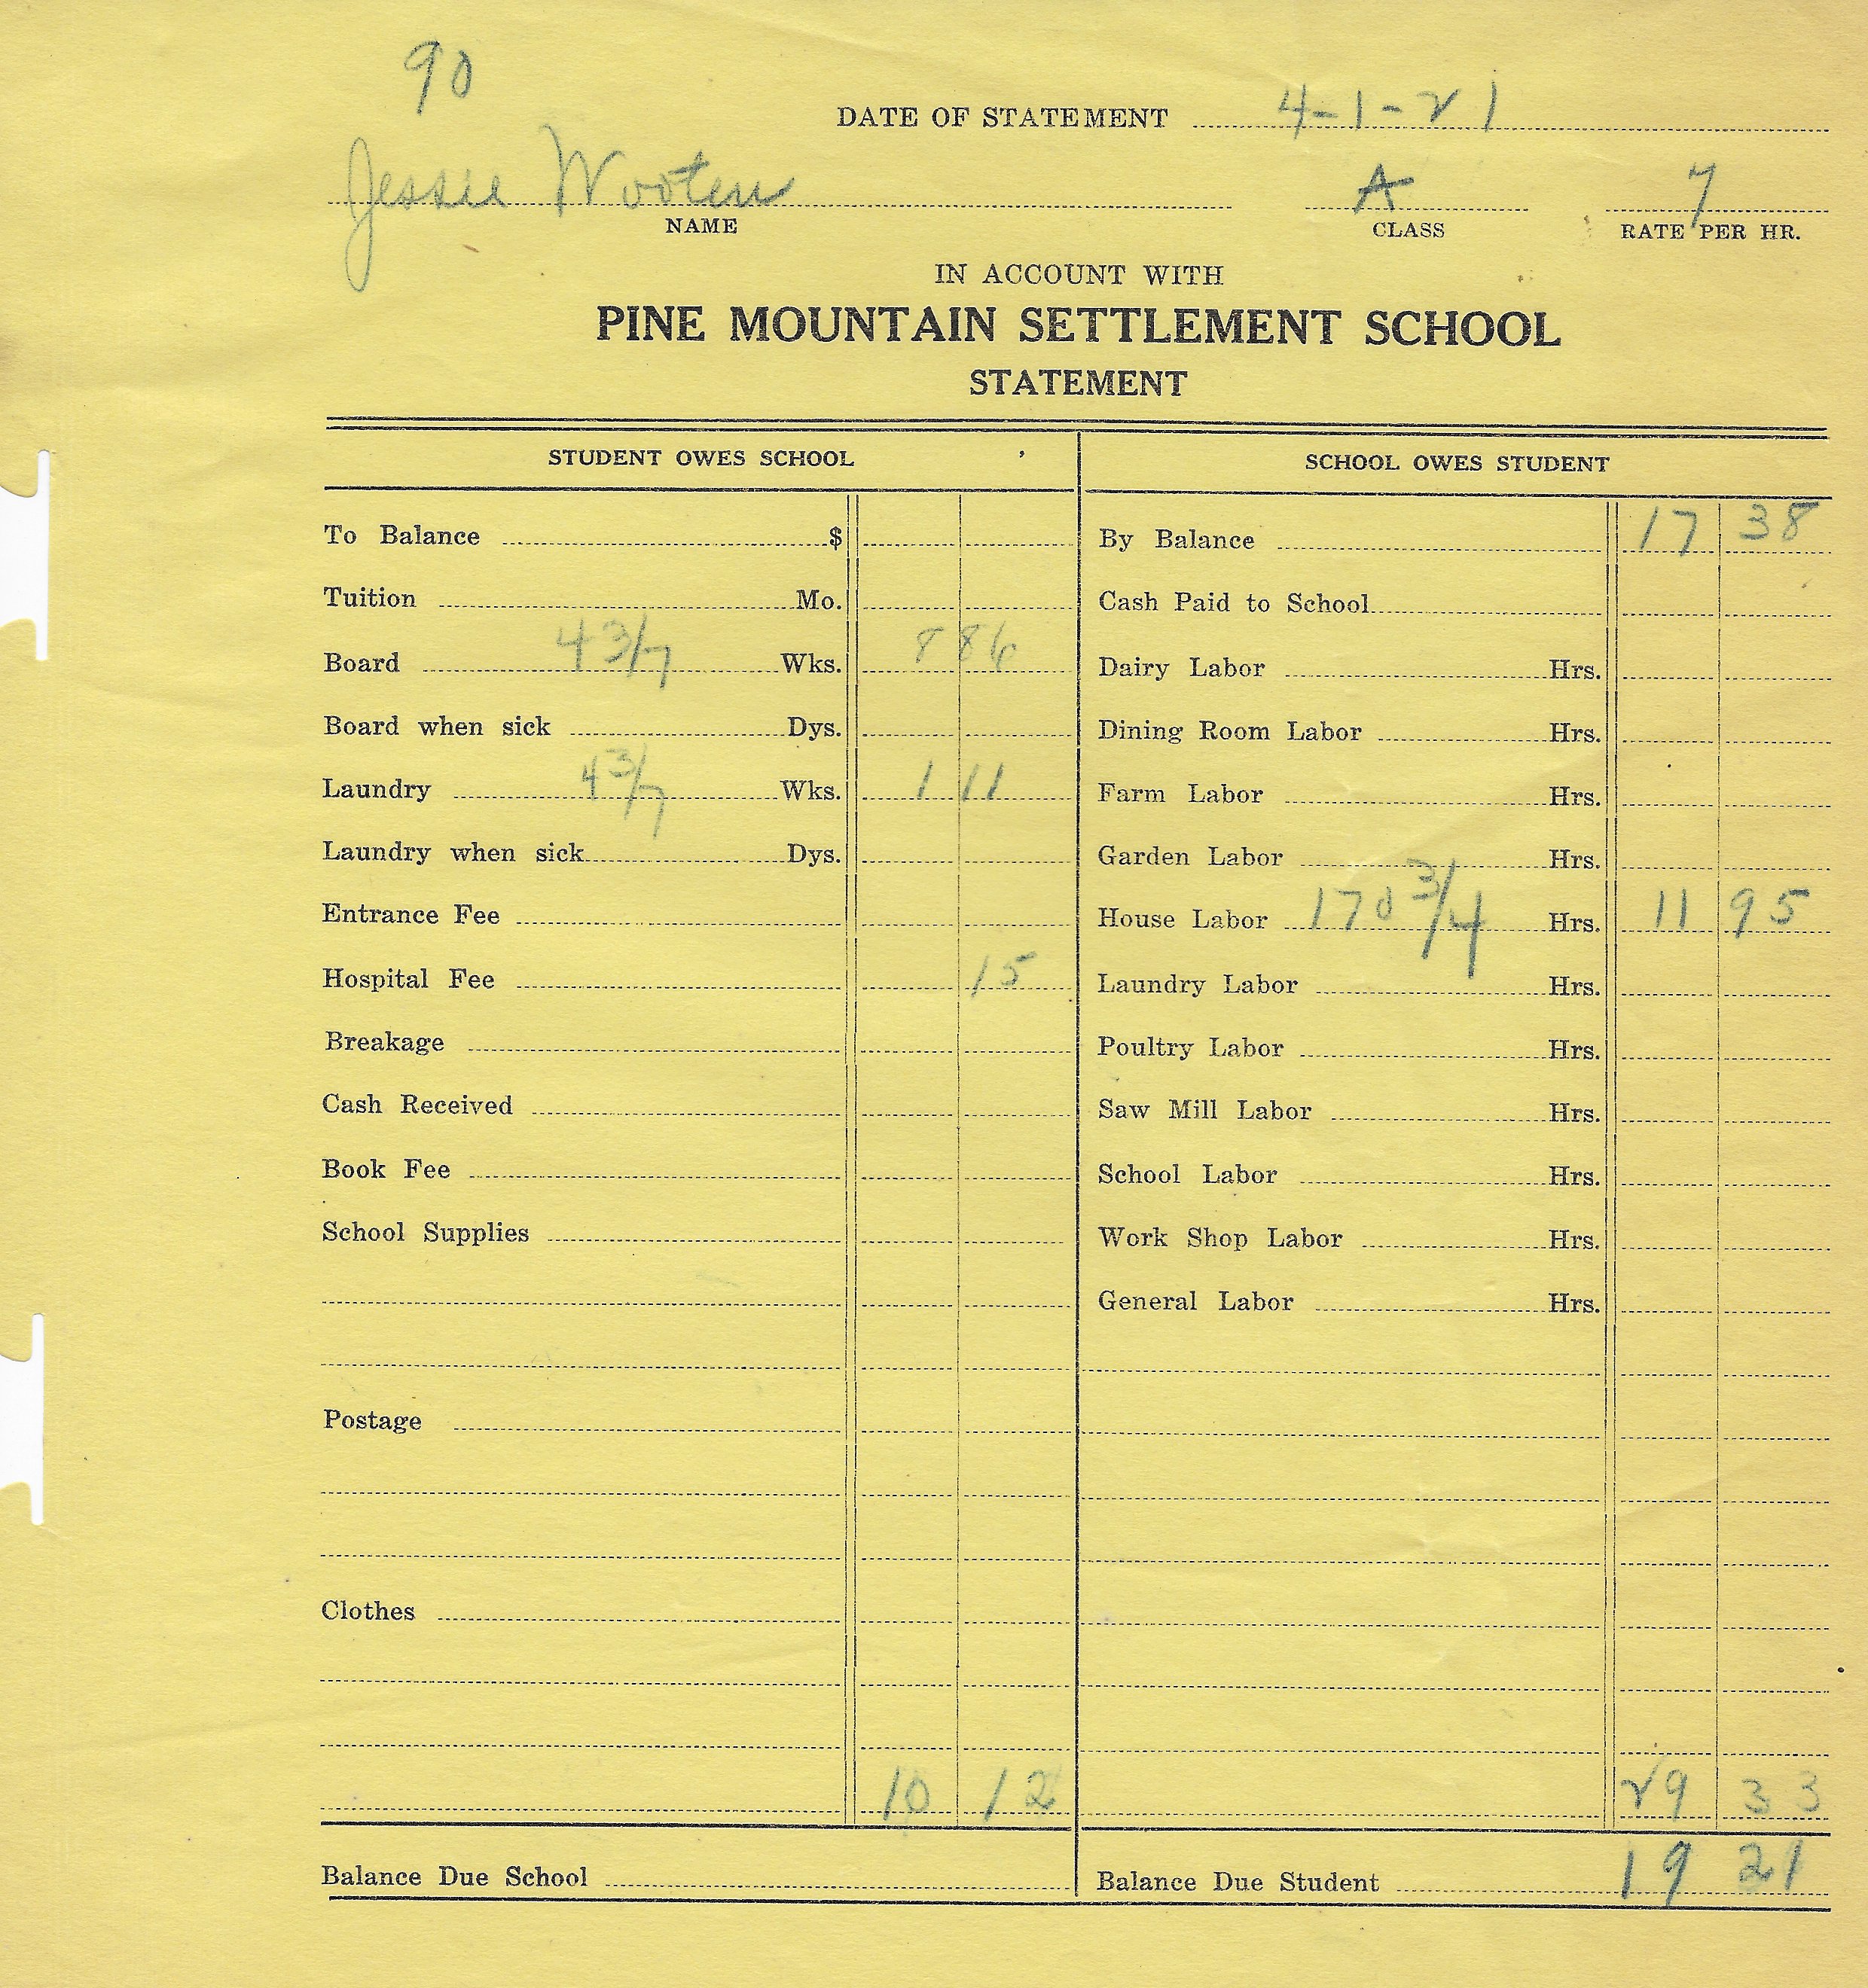 90
DATE OF STATEMENT 4-1-21
Jessie Wooten A 7
NAME CLASS RATE PER HR.
IN ACCOUNT WITH
PINE MOUNTAIN SETTLEMENT SCHOOL
STATEMENT
STUDENT OWES SCHOOL
To Balance $
Tuition Mo.
Board 4 3/7 Wks. 8 86
Board when sick Dys.
Laundry 4 3/7 Wks. 1 11
Laundry when sick Dys.
Entrance Fee
Hospital Fee 15
Breakage
Cash Received
Book Fee
School Supplies
Postage
Clothes
10 12
Balance Due School
SCHOOL OWES STUDENT
By Balance 17 38
Cash Paid to School
Dairy Labor Hrs.
Dining Room Labor Hrs.
Farm Labor Hrs.
Garden Labor Hrs.
House Labor 170 3/4 Hrs. 11 95
Laundry Labor Hrs.
Poultry Labor Hrs.
Saw Mill Labor Hrs.
School Labor Hrs.
Work Shop Labor Hrs.
General Labor Hrs.
29 33
Balance Due Student 19 21